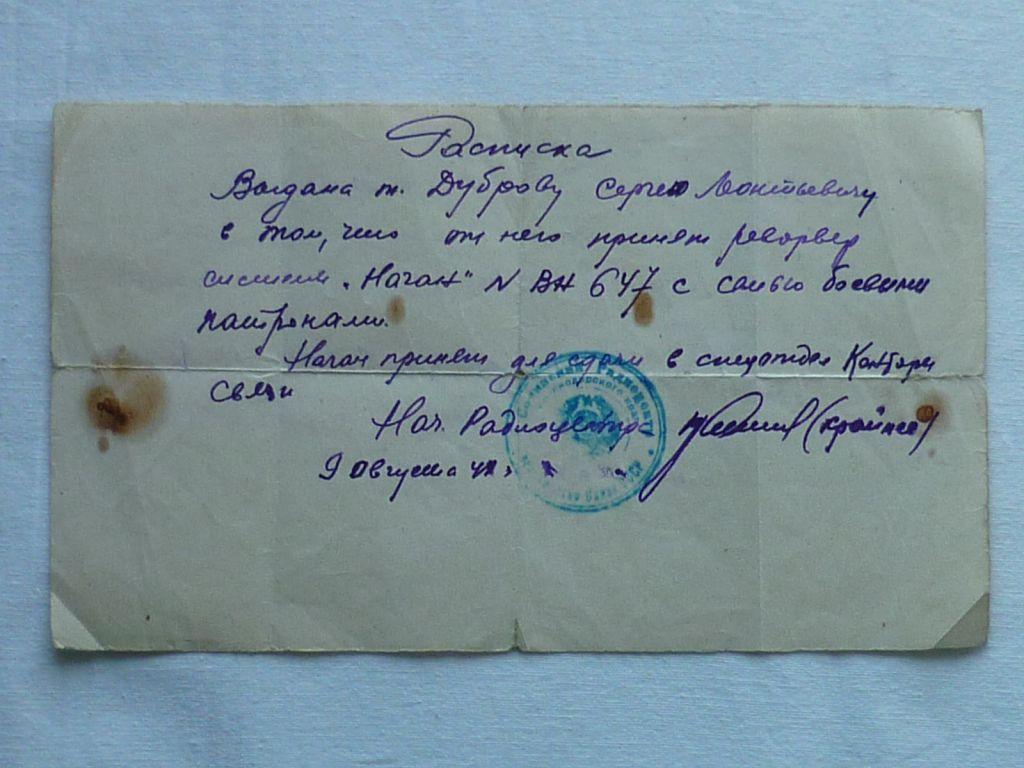 Расписка
Выдана т. Дуброву Сергею Леонтьевичу
в том, что от него принят револьвер
системы „Наган" N ВН 647 с семью боевыми
патронами.
Наган принят для сдачи в спецотдел Конторы
связи
Нач. Радиоцентра (Крайнев)
9 августа